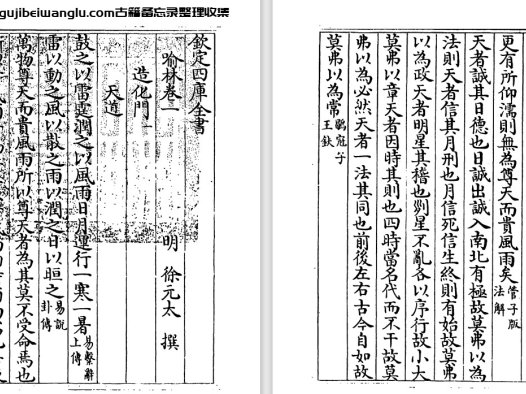 gujibeiwanglu.com古籍备忘录整理收集
欽定四庫全書
喻林卷一 明 徐元太 撰
造化門一
天道
鼓之以雷霆潤之以風雨日月運行一寒一暑易繫辭上傳
雷以動之風以散之雨以潤之日以晅之易說卦傳
萬物尊天而貴風雨所以尊天者為其莫不受命焉也
更有所仰濡則無為尊天而貴風雨矣管子版法解
天者誠其日德也日誠出誠入南北有極故莫弗以為
法則天者信其月刑也月信死信生終則有始故莫弗
以為政天者明星其稽也列星不亂各以序行故小大
莫弗以章天者因時其則也四時當名代而不干故莫
弗以為必然天者一法其同也前後左右古今自如故
莫弗以為常鶡冠子王鈇